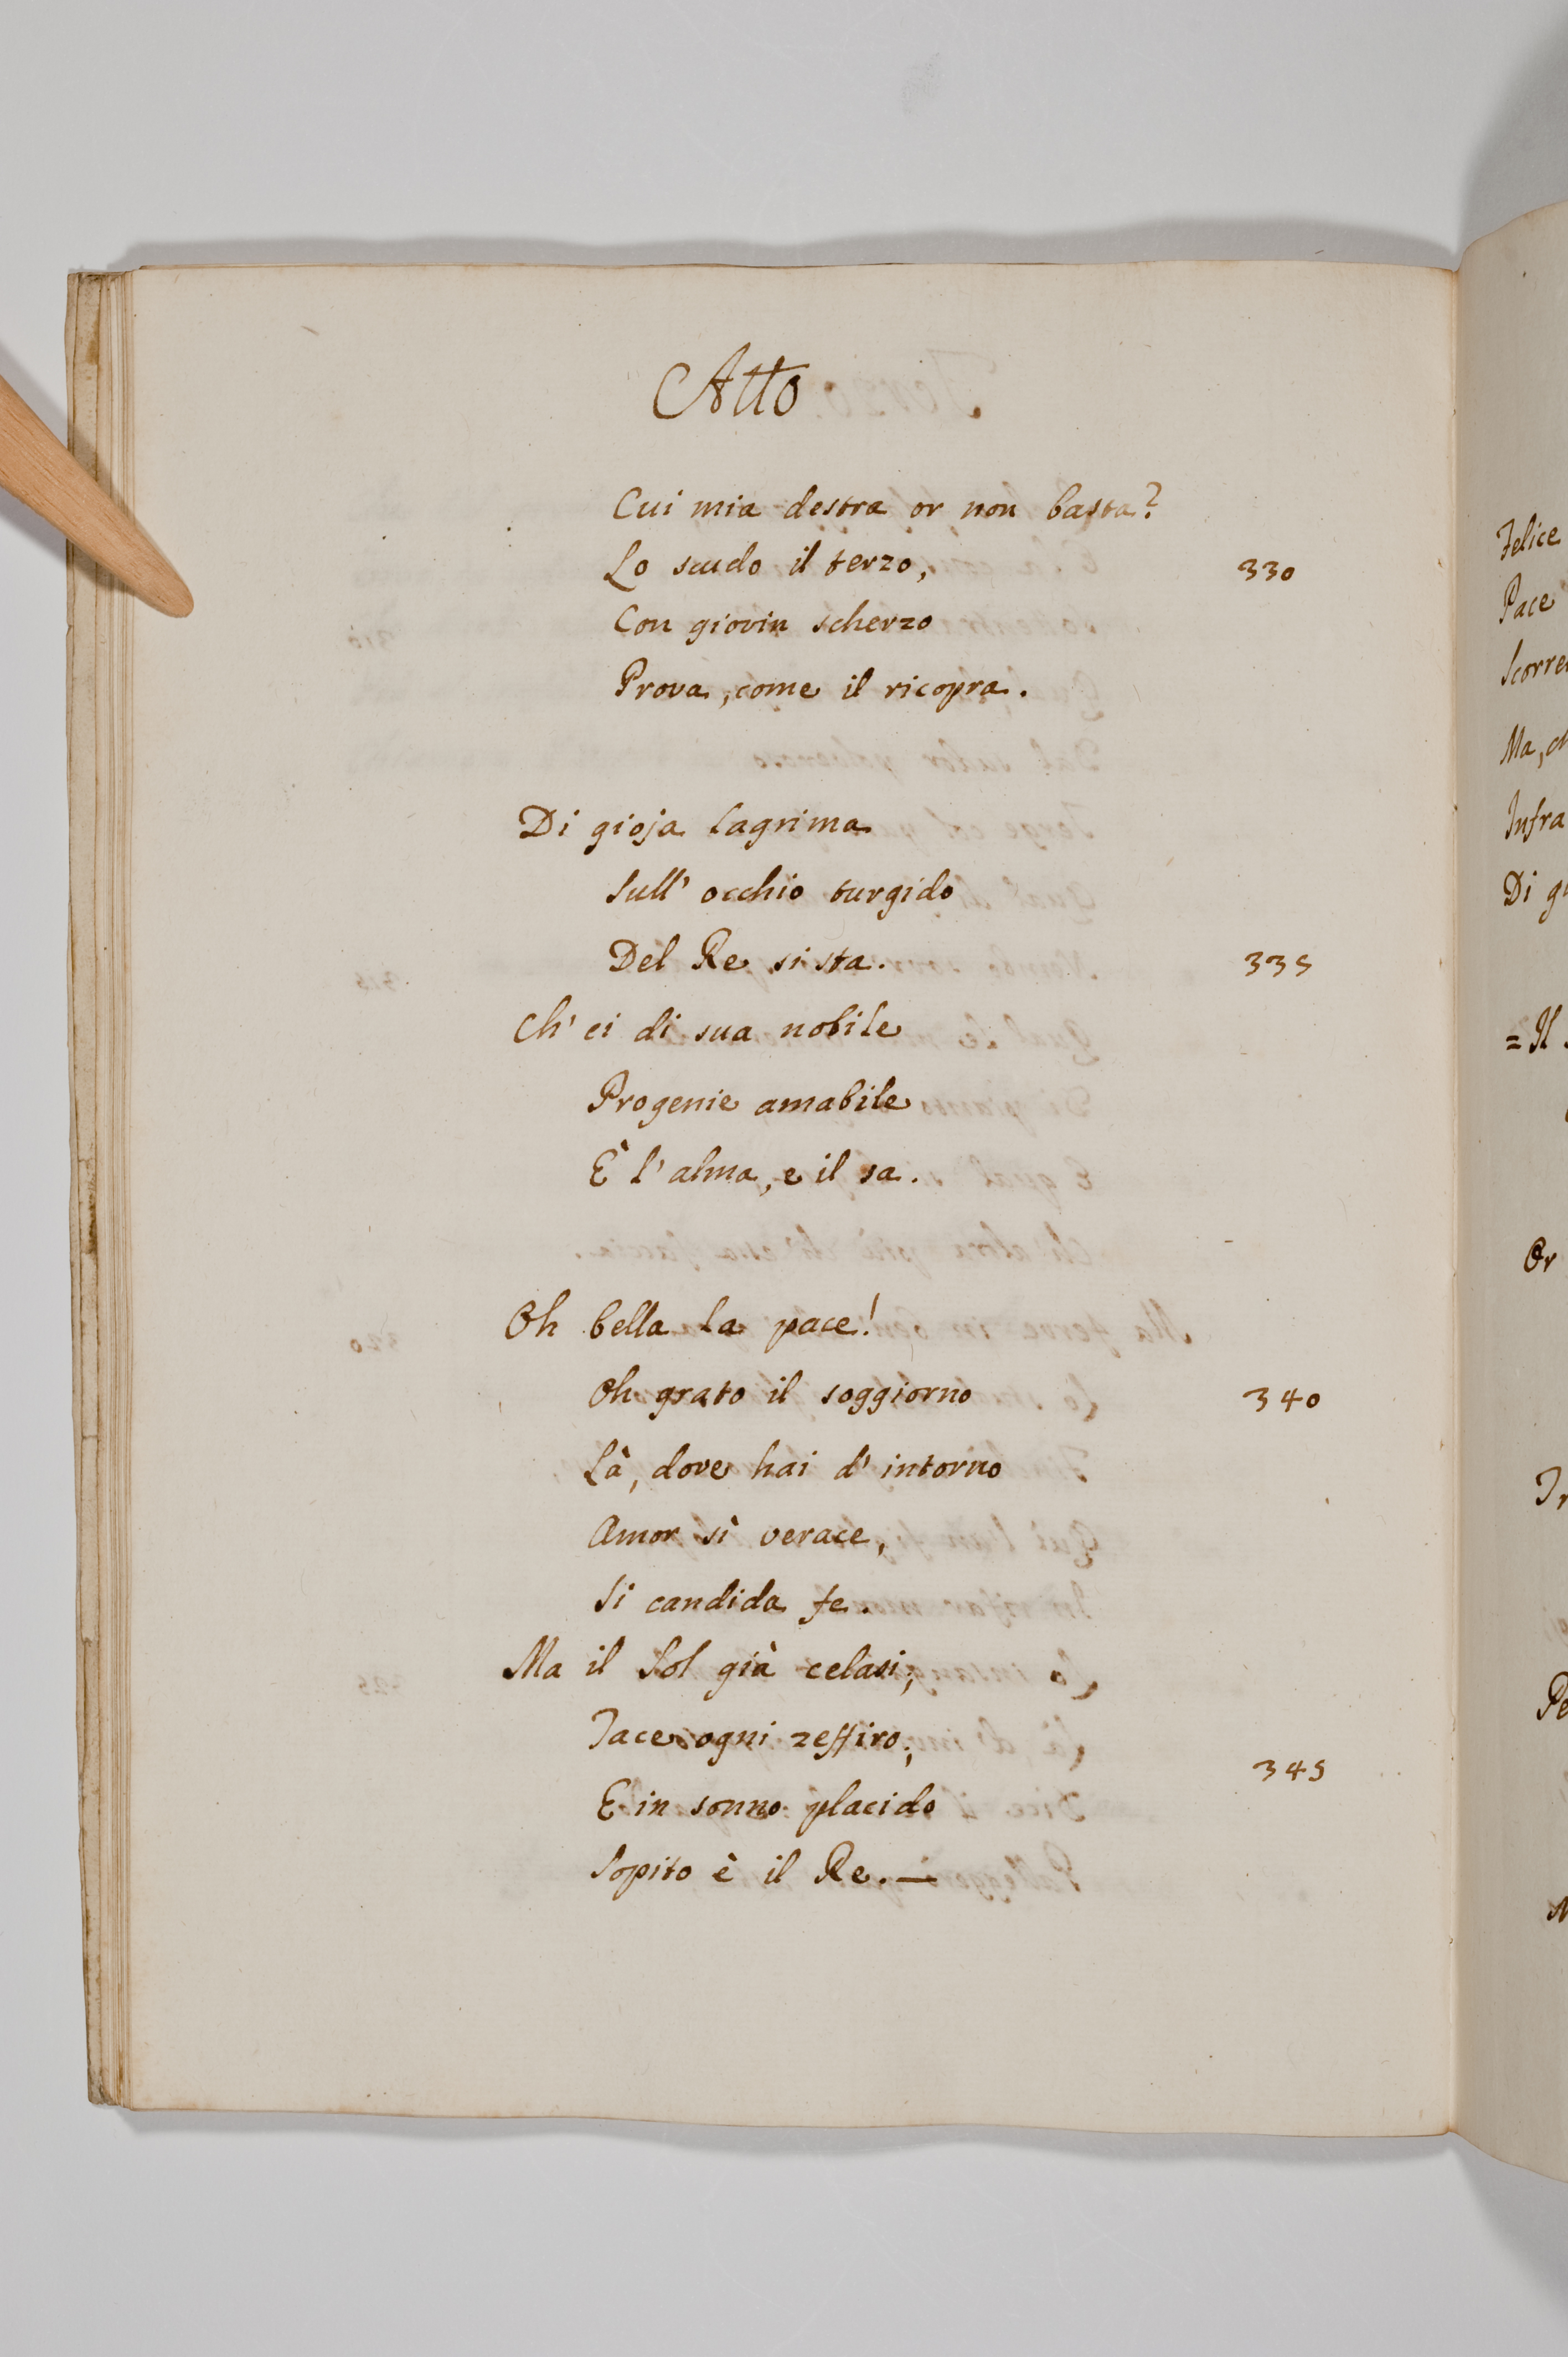 Atto
Cui mia destra or non basta?
Lo scudo il terzo, 330
Con giovin scherzo
Prova, come il ricopra.
Di gioja lagrima
Sull' occhio turgido
Del Re si sta. 335
Ch' ei di sua nobile
Progenie amabile
È l' alma, e il sa.
Oh bella la pace!
Oh grato il soggiorno 340
Là, dove hai d' intorno
Amor sì verace,
Si candida fe.
Ma il Sol già celasi;
Tace ogni zeffiro; 345
E in sonno placido
Sopito è il Re. —
Felice
Pace
Ma,
Infra
Di
= Il
Or